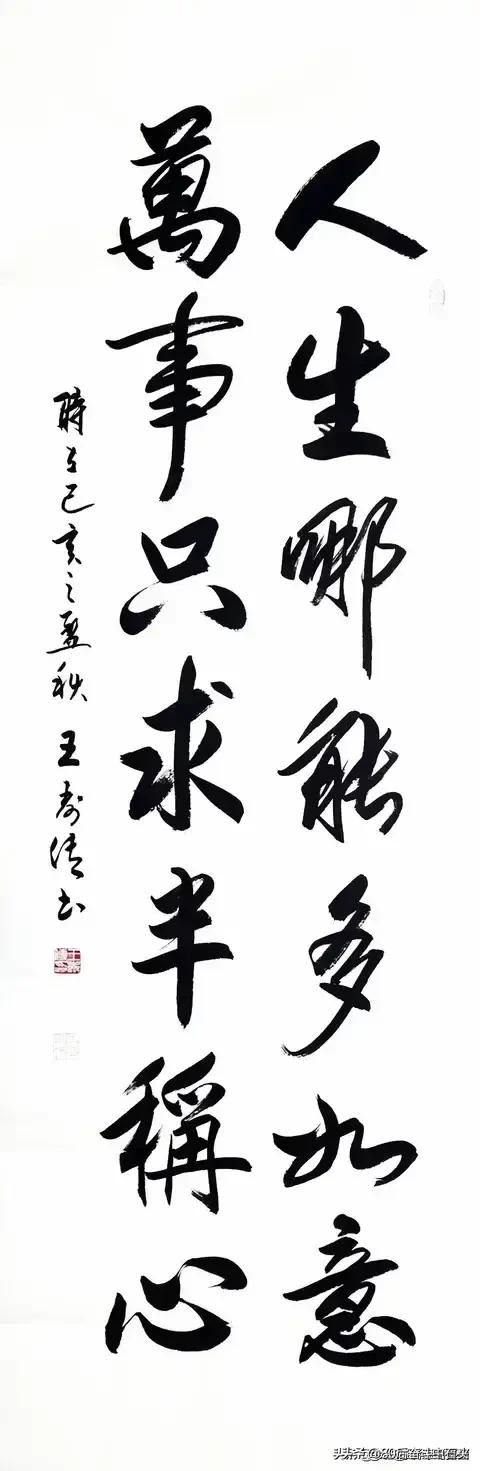 人生哪能多如意
萬事只求半稱心
時在己亥之盈秋 王壽倩书